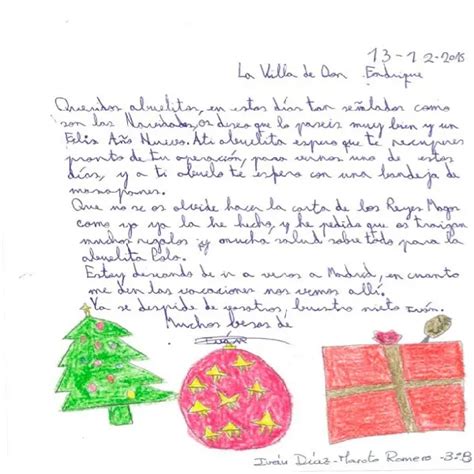 13-12-2015
La Villa de Don Fadrique
Queridos abuelitos, en estos días tan señalados como
son las Navidades, os deseo que lo paseis muy bien y un
Feliz Año Nuevo. A ti abuelita espero que te recuperes
pronto de tu operación, para vernos uno de estos
días, y a ti abuelo te espero con una bandeja de
mazapanes.
Que no se os olvide hacer la carta de los Reyes Magos
como yo ya la he hecho, y he pedido que os traigan
muchos regalos y mucha salud sobre todo para la
abuelita Lola.
Estoy deseando de ir a veros a Madrid, en cuanto
me den las vacaciones nos vemos allí.
Ya se despide de vosotros, vuestro nieto Iván.
Muchos besos de
Iván
Iván Díaz-Maroto Romero -3ºB